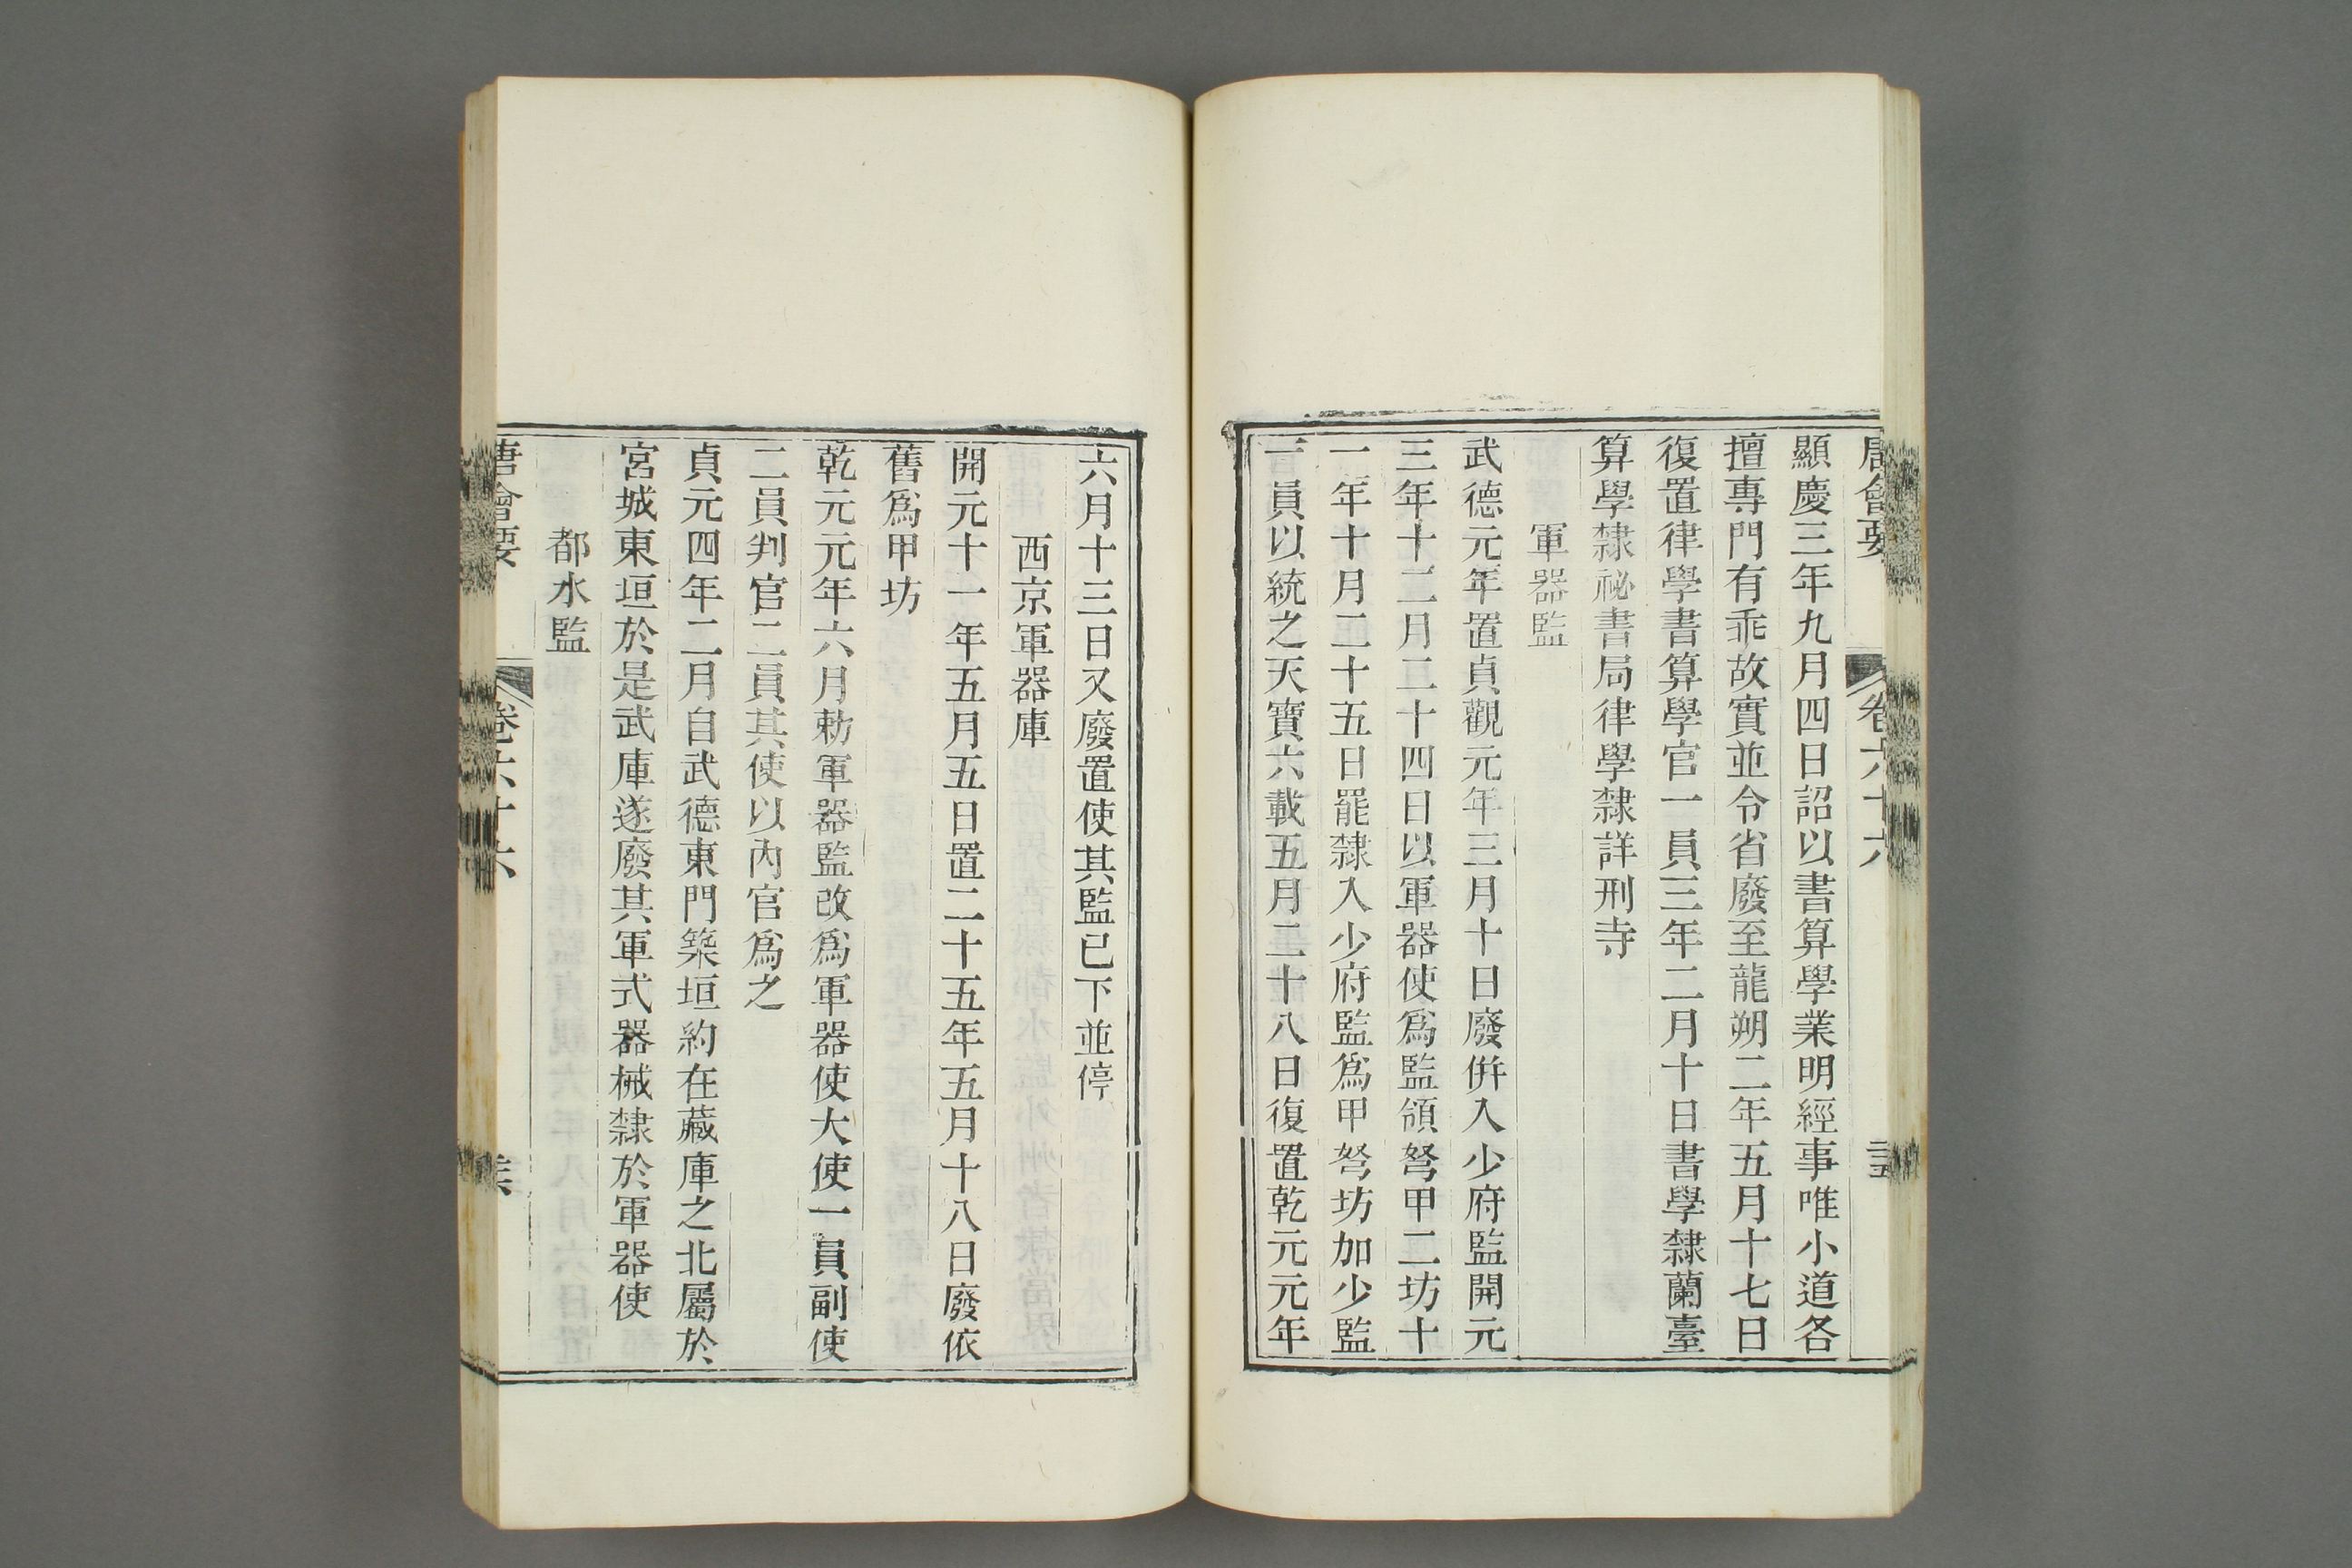 唐會要 卷六十六
顯慶三年九月四日詔以書算學業明經事唯小道各
擅專門有乖故實並令省廢至龍朔二年五月十七日
復置律學書算學官一員三年二月十日書學隸蘭臺
算學隸祕書局律學隸詳刑寺
軍器監
武德元年置貞觀元年三月十日廢併入少府監開元
三年十二月二十四日以軍器使爲監領弩甲二坊十
一年十月二十五日罷隸入少府監爲甲弩坊加少監
一員以統之天寶六載五月二十八日復置乾元元年
六月十三日又廢置使其監已下並停
西京軍器庫
開元十一年五月五日置二十五年五月十八日廢依
舊爲甲坊
乾元元年六月勅軍器監改爲軍器使大使一員副使
二員判官二員其使以內官爲之
貞元四年二月自武德東門築垣約在藏庫之北屬於
宮城東垣於是武庫遂廢其軍式器械隸於軍器使
都水監
唐會要 卷六十六